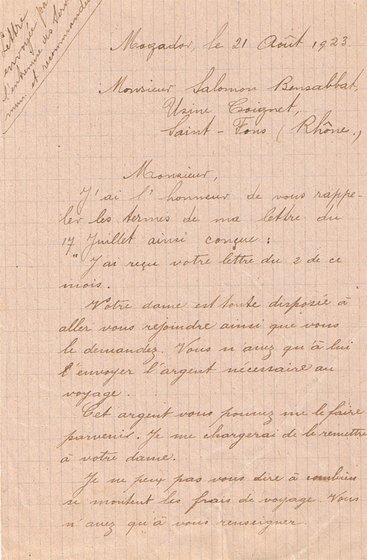 Lettre
envoyée par
l'entremise des Serv
et recommandée
Mogador, le 21 Août 1923
Monsieur Salomon Bensabbat,
Usine Coignet,
Saint-Fons (Rhône.)
Monsieur,
J'ai l'honneur de vous rappe-
ler les termes de ma lettre du
17 Juillet ainsi conçue :
"J'ai reçu votre lettre du 2 de ce
mois.
Votre dame est toute disposée à
aller vous rejoindre ainsi que vous
le demandez. Vous n'avez qu'à lui
l'envoyer l'argent nécessaire au
voyage.
Cet argent vous pouvez me le faire
parvenir. Je me chargerai de le remettre
à votre dame.
Je ne peux pas vous dire à combien
se montent les frais de voyage. Vous
n'avez qu'à vous renseigner.